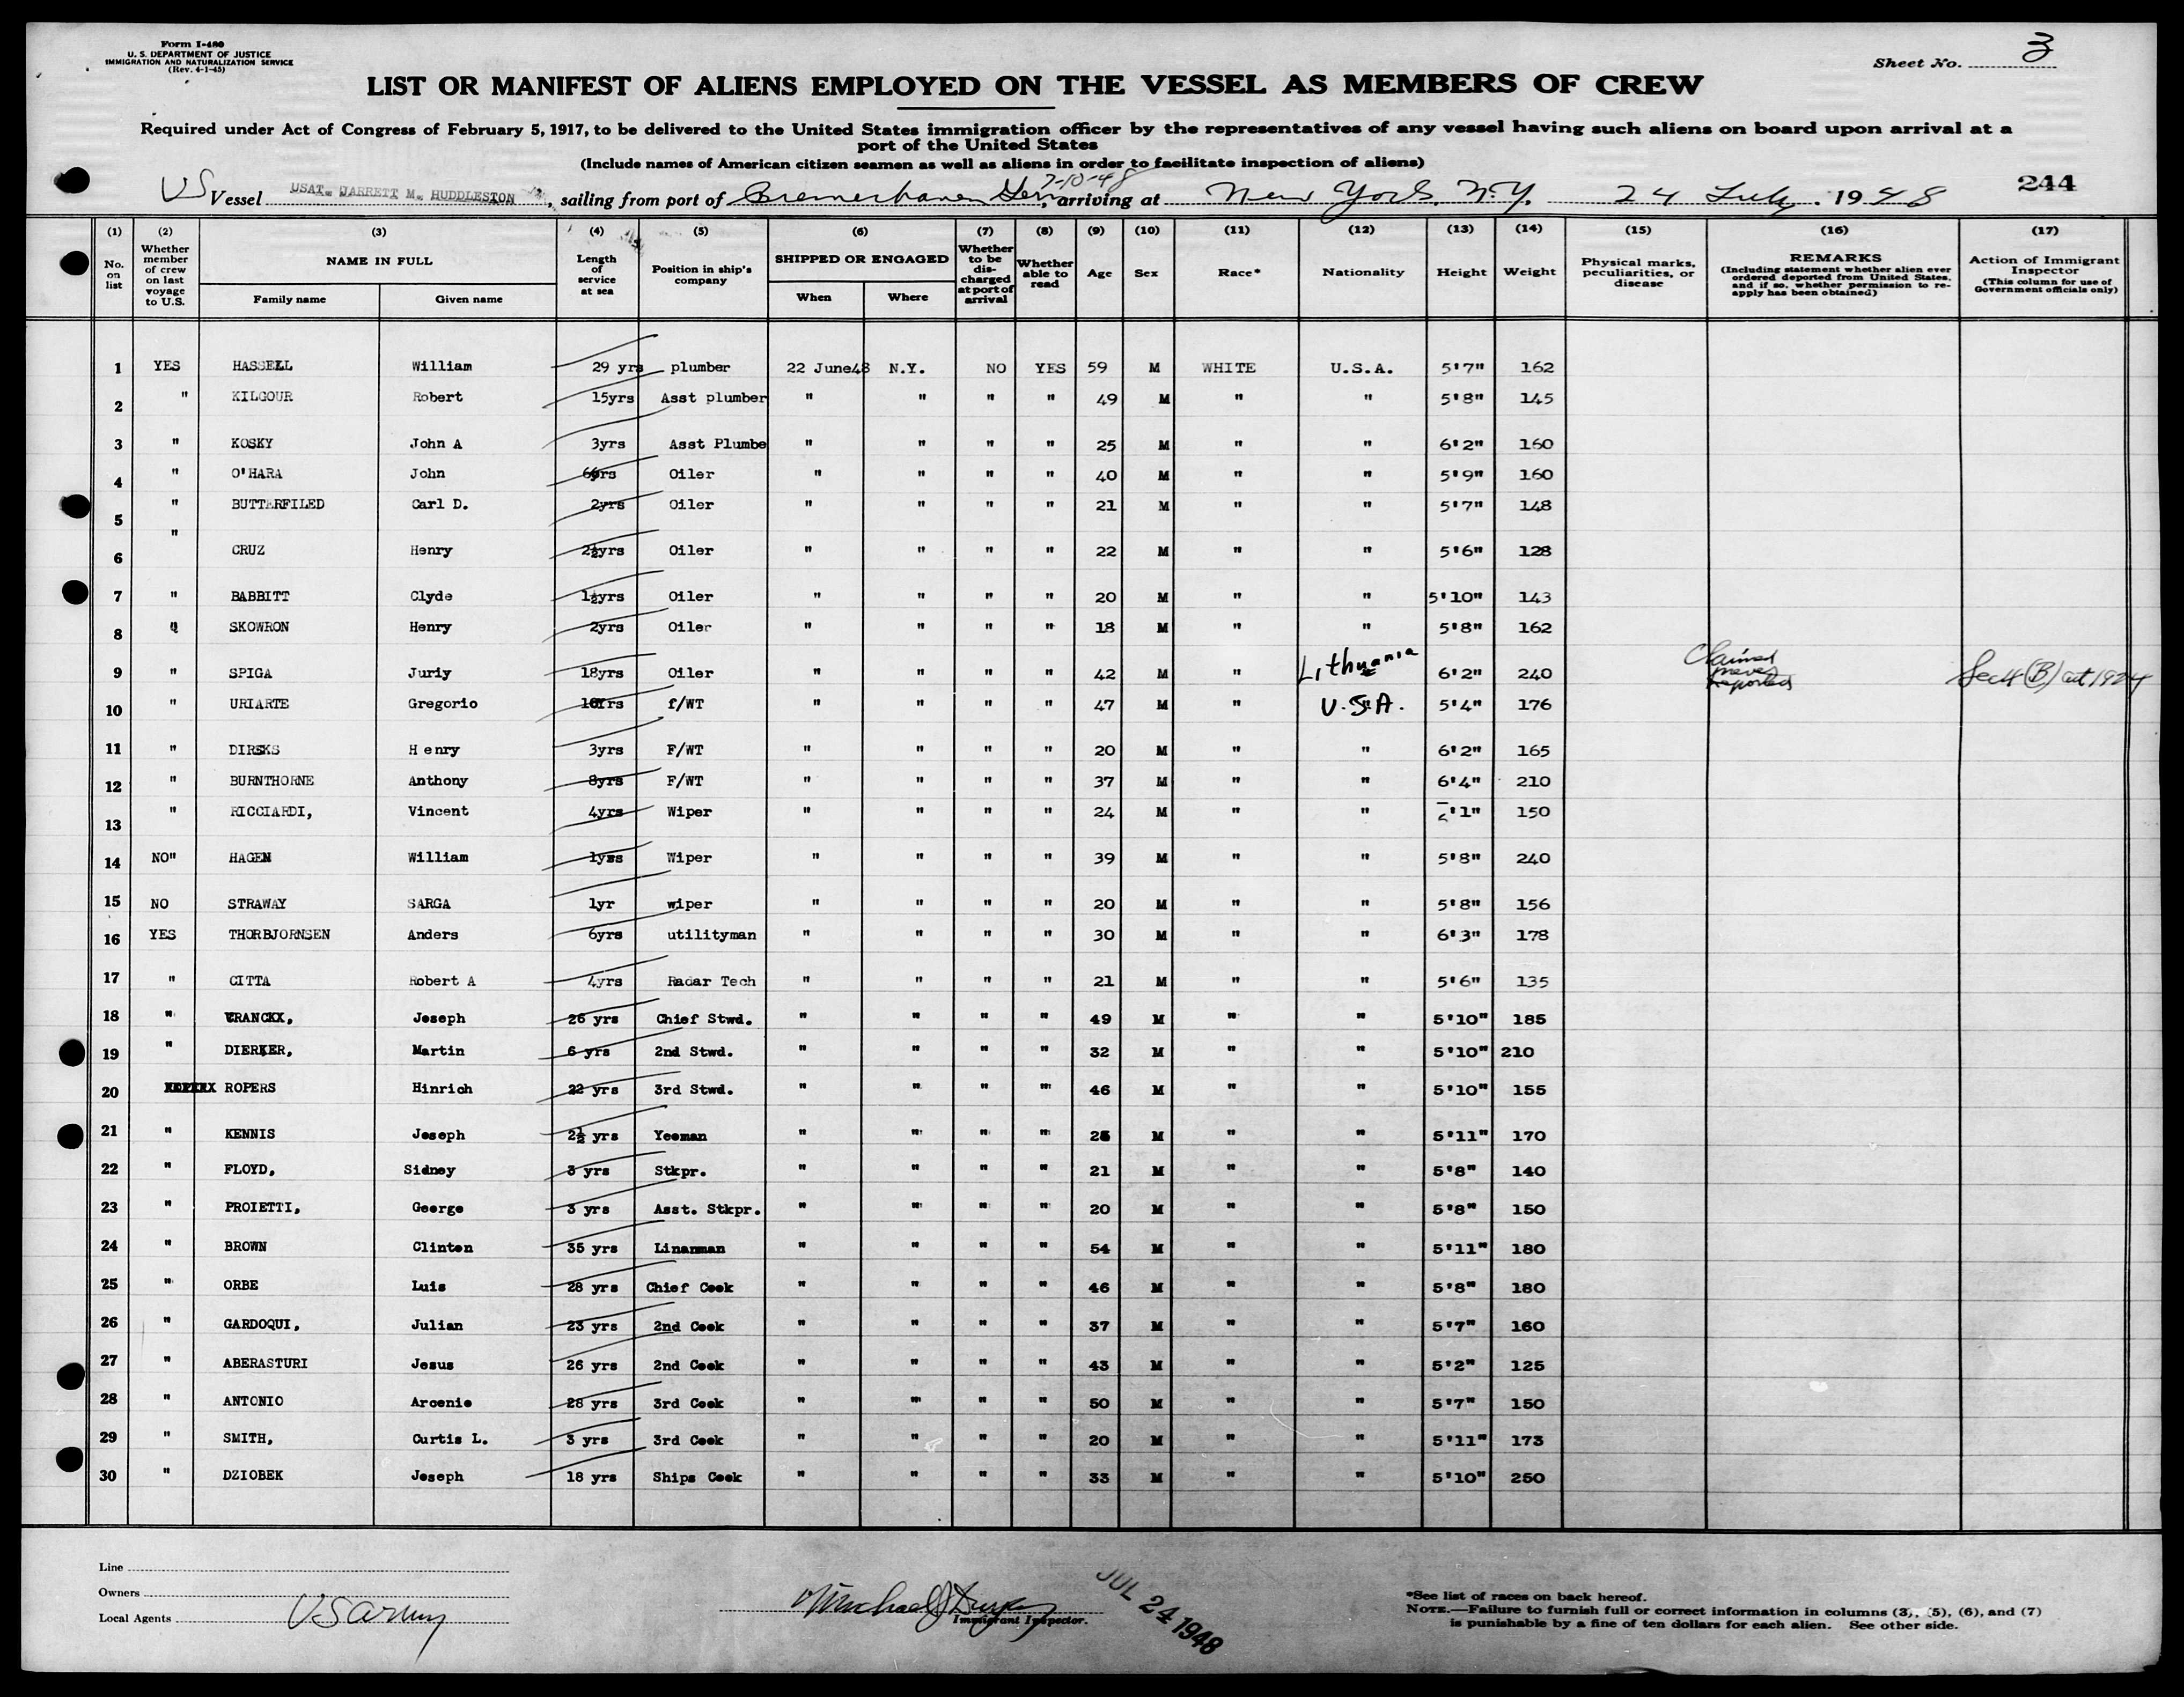 Form I-480
U. S. DEPARTMENT OF JUSTICE
IMMIGRATION AND NATURALIZATION SERVICE
(Rev. 4-1-45)
Sheet No. 3
LIST OR MANIFEST OF ALIENS EMPLOYED ON THE VESSEL AS MEMBERS OF CREW
Required under Act of Congress of February 5, 1917, to be delivered to the United States immigration officer by the representatives of any vessel having such aliens on board upon arrival at a
port of the United States
(Include names of American citizen seamen as well as aliens in order to facilitate inspection of aliens)
7-10-48
US Vessel USAT. JARRETT M. HUDDLESTON, sailing from port of Bremerhaven Ger, arriving at New York, N.Y. 24 July, 1948 244
(1) (2) (3) (4) (5) (6) (7) (8) (9) (10) (11) (12) (13) (14) (15) (16) (17)
No. on list Whether member of crew on last voyage to U.S. NAME IN FULL Family name Given name Length of service at sea Position in ship's company SHIPPED OR ENGAGED When Where Whether to be discharged at port of arrival Whether able to read Age Sex Race* Nationality Height Weight Physical marks, peculiarities, or disease REMARKS (Including statement whether alien ever ordered deported from United States, and if so, whether permission to re-apply has been obtained) Action of Immigrant Inspector (This column for use of Government officials only)
1 YES HASSELL William 29 yrs plumber 22 June48 N.Y. NO YES 59 M WHITE U.S.A. 5'7" 162
2 " KILGOUR Robert 15yrs Asst plumber " " " " 49 M " " 5'8" 145
3 " KOSKY John A 3yrs Asst Plumbe " " " " 25 M " " 6'2" 160
4 " O'HARA John yrs Oiler " " " " 40 M " " 5'9" 160
5 " BUTTERFILED Carl D. 2yrs Oiler " " " " 21 M " " 5'7" 148
6 " CRUZ Henry 2½yrs Oiler " " " " 22 M " " 5'6" 128
7 " BABBITT Clyde 1½yrs Oiler " " " " 20 M " " 5'10" 143
8 " SKOWRON Henry 2yrs Oiler " " " " 18 M " " 5'8" 162
9 " SPIGA Juriy 18yrs Oiler " " " " 42 M " Lithuania 6'2" 240 Claimed never deported Sec 4 (B) act 1924
10 " URIARTE Gregorio yrs f/WT " " " " 47 M " U.S.A. 5'4" 176
11 " DIRSKS H enry 3yrs F/WT " " " " 20 M " " 6'2" 165
12 " BURNTHORNE Anthony 8yrs F/WT " " " " 37 M " " 6'4" 210
13 " RICCIARDI, Vincent 4yrs Wiper " " " " 24 M " " '1" 150
14 NO" HAGEN William 1yrs Wiper " " " " 39 M " " 5'8" 240
15 NO STRAWAY SARGA 1yr wiper " " " " 20 M " " 5'8" 156
16 YES THORBJORNSEN Anders 6yrs utilityman " " " " 30 M " " 6'3" 178
17 " CITTA Robert A 4yrs Radar Tech " " " " 21 M " " 5'6" 135
18 " VRANCKX, Joseph 26 yrs Chief Stwd. " " " " 49 M " " 5'10" 185
19 " DIERKER, Martin 6 yrs 2nd Stwd. " " " " 32 M " " 5'10" 210
20 ROPERS Hinrich 22 yrs 3rd Stwd. " " " " 46 M " " 5'10" 155
21 " KENNIS Joseph 2½ yrs Yeoman " " " " 25 M " " 5'11" 170
22 " FLOYD, Sidney 3 yrs Stkpr. " " " " 21 M " " 5'8" 140
23 " PROIETTI, George 3 yrs Asst. Stkpr. " " " " 20 M " " 5'8" 150
24 " BROWN Clinton 35 yrs Linanman " " " " 54 M " " 5'11" 180
25 " ORBE Luis 28 yrs Chief Cook " " " " 46 M " " 5'8" 180
26 " GARDOQUI, Julian 23 yrs 2nd Cook " " " " 37 M " " 5'7" 160
27 " ABERASTURI Jesus 26 yrs 2nd Cook " " " " 43 M " " 5'2" 125
28 " ANTONIO Arcenio 28 yrs 3rd Cook " " " " 50 M " " 5'7" 150
29 " SMITH, Curtis L. 3 yrs 3rd Cook " " " " 20 M " " 5'11" 173
30 " DZIOBEK Joseph 18 yrs Ships Cook " " " " 33 M " " 5'10" 250
Line
Owners
Local Agents US Army
Michael J
Immigrant Inspector.
JUL 24 1948
*See list of races on back hereof.
NOTE.—Failure to furnish full or correct information in columns (3), (5), (6), and (7)
is punishable by a fine of ten dollars for each alien. See other side.